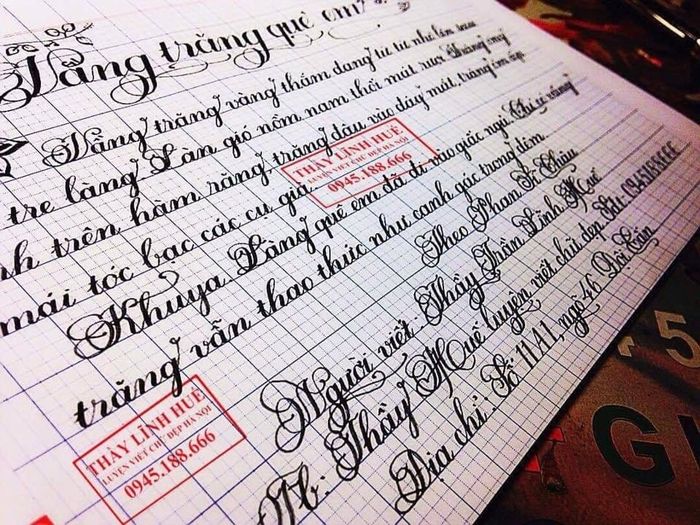 Vầng trăng quê em
Vầng trăng vàng thắm đang từ từ nhô lên sau
tre làng. Làn gió nồm nam thổi mát rượi. Trăng ơi
trên hàm răng, trăng đậu vào đáy mắt, trăng ôm ấp
mái tóc bạc các cụ già.
THẦY LĨNH HUẾ
LUYỆN VIẾT CHỮ ĐẸP HÀ NỘI
0945.188.666
Khuya. Làng quê em đã đi vào giấc ngủ. Chỉ có vầng
trăng vẫn thao thức như canh gác trong đêm.
Theo Phan Sĩ Châu
Người viết: Thầy Trần Lĩnh Huế
Thầy Huế luyện viết chữ đẹp. Sđt: 0945188666
Địa chỉ: Số 11A1, ngõ 46 Đội Cấn
THẦY LĨNH HUẾ
LUYỆN VIẾT CHỮ ĐẸP HÀ NỘI
0945.188.666
5
G